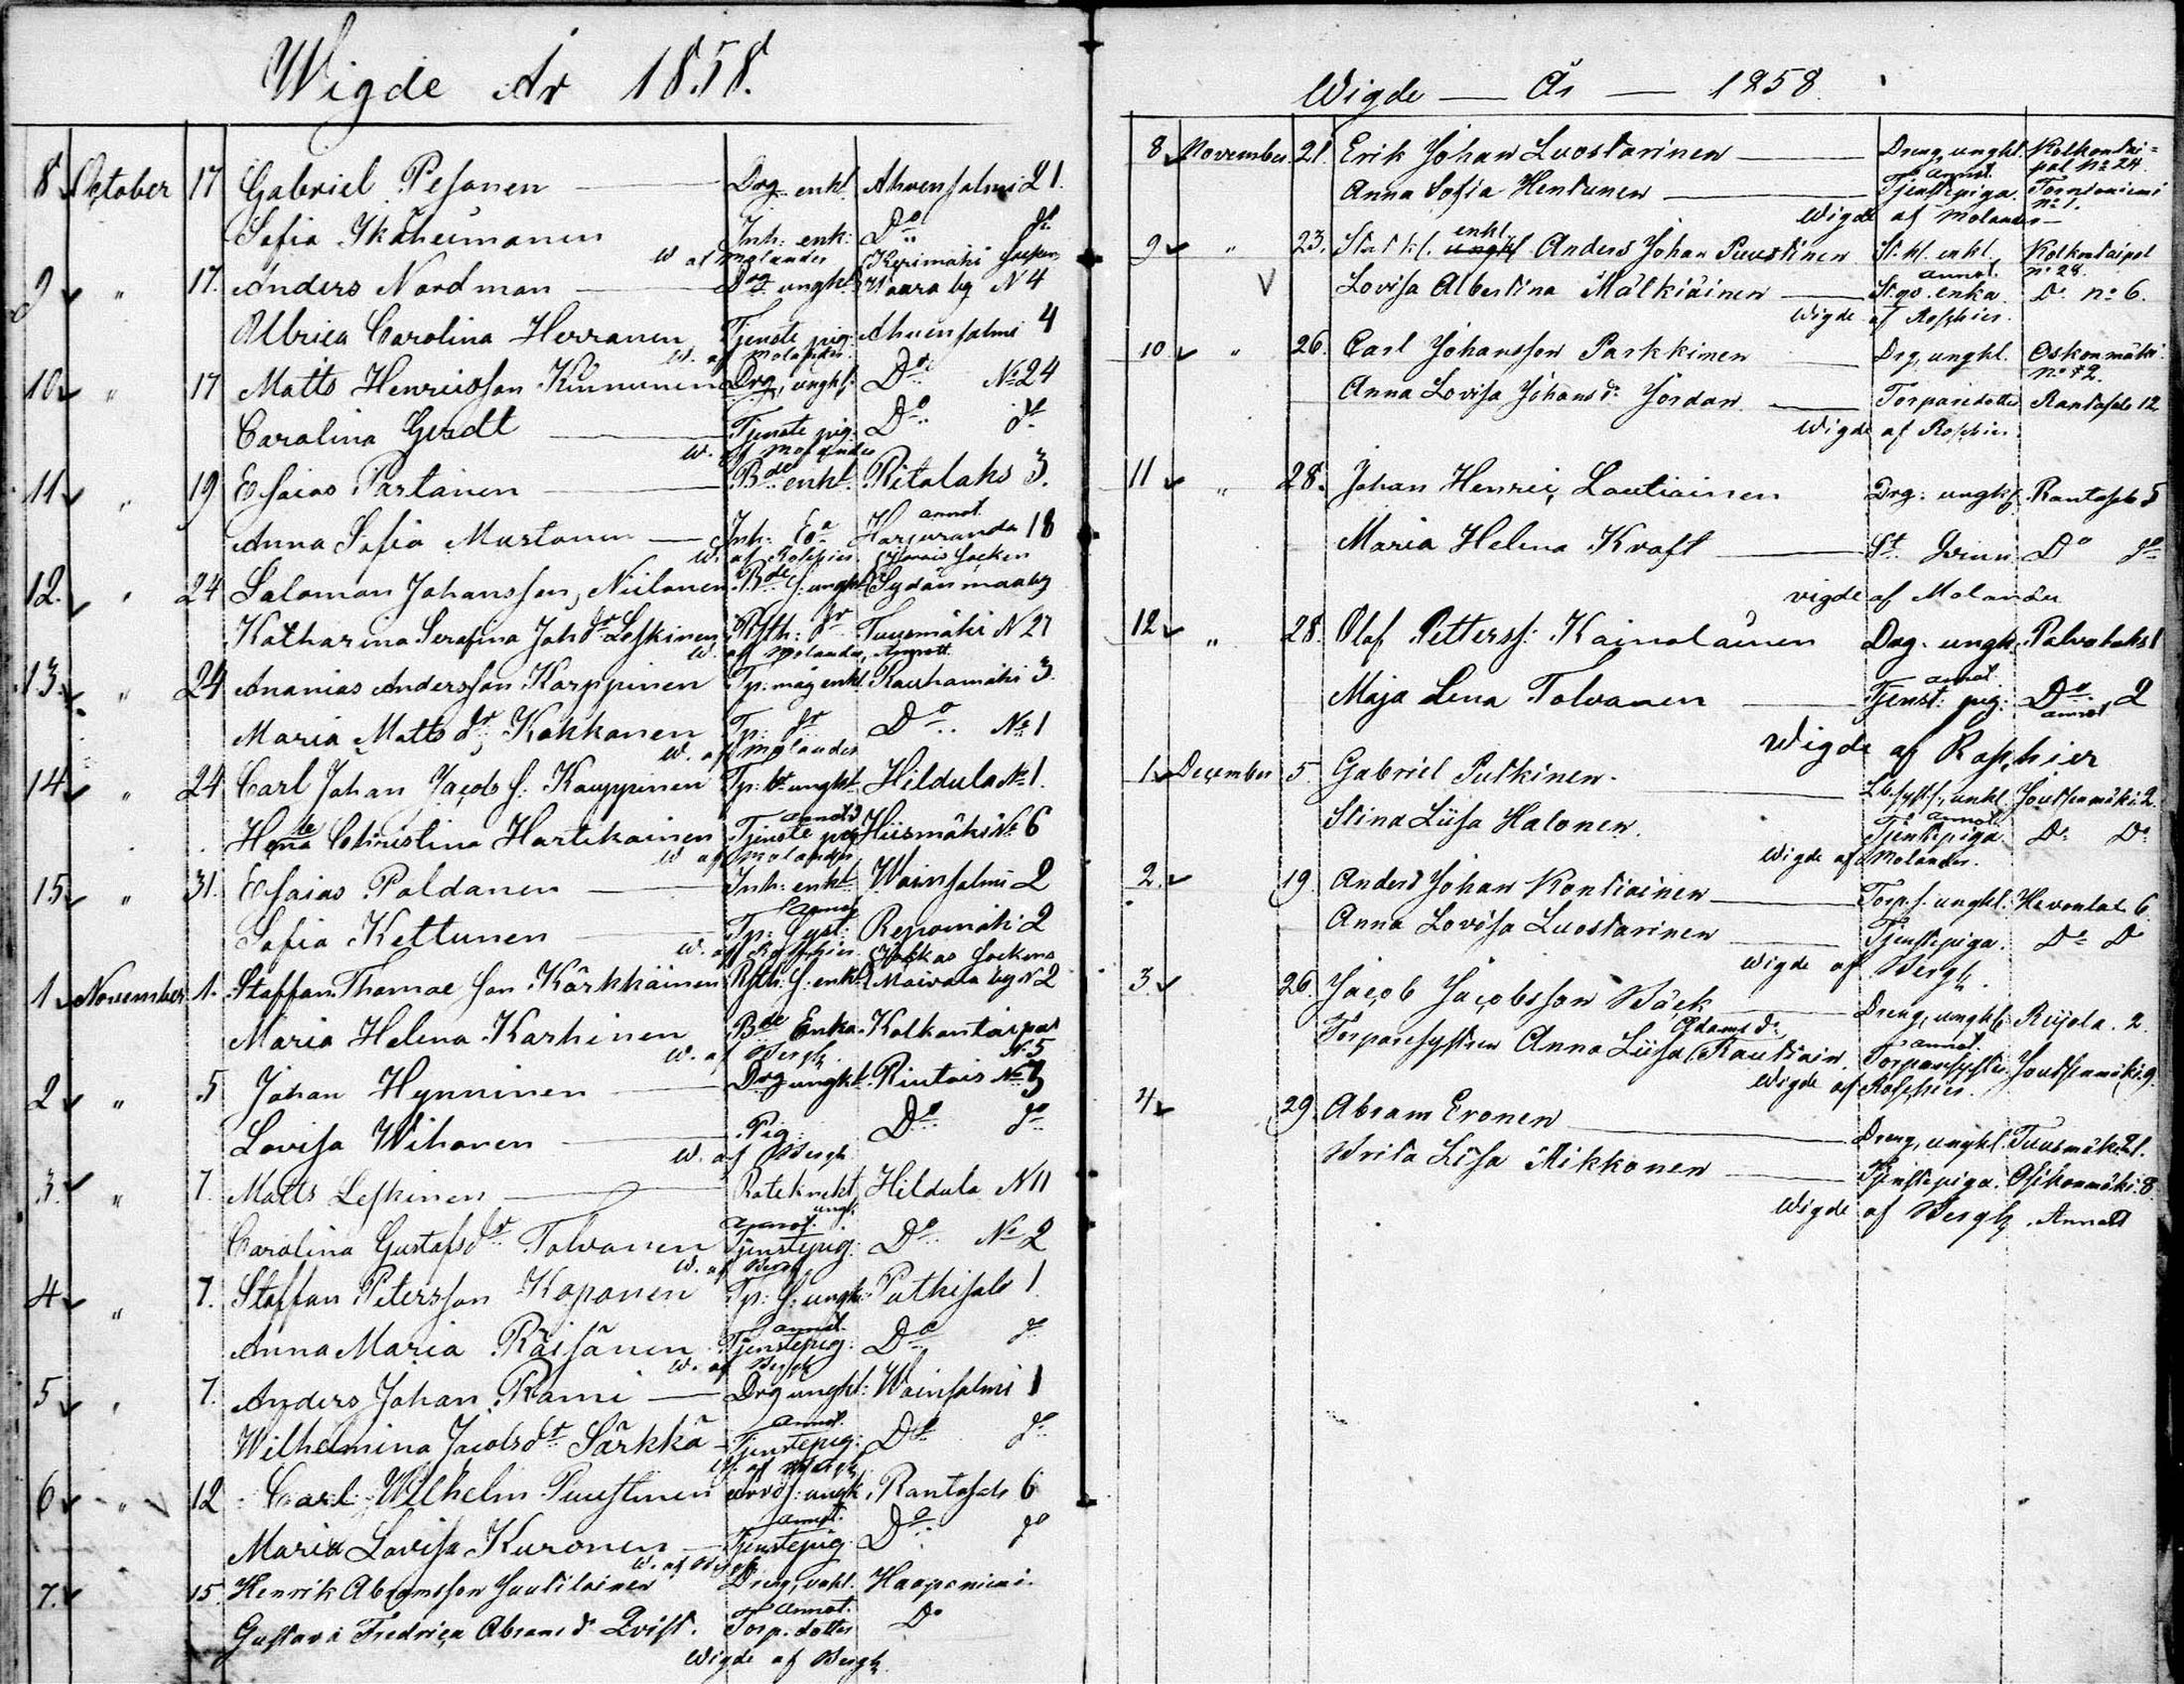 Wigde År 1858.
8 October 17 Gabriel Pesonen Drg. enkl. Ahvensalmi 21.
Sofia Ikäheimonen Inh: enk: Do do
W af Molander Kerimäki
9 " 17. Anders Nordman Drg ungkl Waara by N 4
Ulrica Carolina Herranen Tjenste pig: Ahvensalmi 4
W. af Molander
10 " 17 Matts Henricsson Kinnunen Drg, ungkl: Do No 24
Carolina Gerdt Tjenste pig: Do do
W. af Molander
11 " 19 Esaias Partanen Bde enkl. Ritalaks 3.
annot.
Anna Sofia Mustonen Inh: Ea Harjuranda 18
W. af Roschier Jorois Socken
12. " 24 Salomon Johansson, Niilonen Bde S: ungkl Sydänmaa by
Katharina Serafina Joh dr Leskinen Rsth: dr Tuusmäki N 27
W. af Molander, Annott.
13. " 24 Ananias Andersson Karppinen Tp: måg enkl Kauhamäki 3.
Maria Matts dr, Kokkonen Tp: dr Do No 1
W. af Molander
14 " 24 Carl Johan Jacobs S: Kauppinen Tp: br ungkl. Hildula No 1.
annot
Hena Christina Hartikainen Tjenste pig Hiismäki No 6
W af Molander
15 " 31. Esaias Paldanen Inh: enkl Wainsalmi 2
annot
Sofia Kettunen Tp: Syst: Repomäki 2
W. af Roschier Jockas Sockens
1 November 1. Staffan Thomae son Kärkkäinen Rsth: S: enkl Maivala by N 2
Maria Helena Karhinen Bde Enka Kolkontaipal
W. af Bergh N 5
2 " 5 Johan Hynninen Drg ungkl. Rintais No 3
Lovisa Wihonen Pig Do do
W. af Bergh
3. " 7. Matts Leskinen Roteknekt Hildula N 11
annot. ungk
Carolina Gustafs dr Tolvanen Tjenstepig: Do No 2
W. af Bergh
4 " 7. Staffan Petersson Koponen Tp: S: ungk: Puthisalo 1
annot.
Anna Maria Räisänen Tjenstepig: Do do
W. af Bergh
5 " 7. Anders Johan Rami Drg ungkl: Wainsalmi 1
annot.
Wilhelmina Jacobs dr Särkkä Tjenstepig: Do do
W. af Bergh
6 " 12 Carl Wilhelm Puustinen ungk Rantasalo 6
annot.
Maria Lovisa Kuronen Tjenstepig Do do
W. af Bergh
7. 15. Henrik Abramsson Juutilainen Dreng, enkl. Haapaniemi.
annot.
Gustava Fredrica Abrams dr Qvist. Torp. dotter Do
Wigde af Bergh
Wigde — År — 1858.
8 November. 21. Erik Johan Luostarinen Dreng, ungkl. Kolkontai=
annot. pal No 24.
Anna Sofia Hentunen Tjenstepiga. Torniоniemi
No 1.
Wigde af Molander
enkl.
9 " 23. Statkl. ungkl Anders Johan Puustinen St. kl. enkl. Kolkontaipal
annot. No 28.
Lovisa Albertina Mälkiäinen enka Do No 6.
Wigde af Roschier.
10 " 26. Carl Johansson Parkkinen Drg, ungkl. Oskonmäki
No 12.
Anna Lovisa Johans dr Jordan Torparedotter Rantasalo 12
Wigde af Roschier.
11 " 28. Johan Henric, Lautiainen Drg: ungk: Rantasalo 5
Maria Helena Kraft Do do
vigde af Molander
12 " 28. Olof Petterss: Kainolainen Drg. ungk. Palvalaks 1
annot
Maja Lena Tolvanen Tjenst: pig: Do 2
annot
Wigde af Roschier
1 December 5. Gabriel Putkinen. enkl. Joutsenmäki 2.
annot.
Stina Liisa Halonen. Tjenstepiga. Do Do
Wigde af Molander.
2. 19. Anders Johan Kontiainen Torp. s. ungkl. Hevonlaks 6.
Anna Lovisa Luostarinen Tjenstepiga. Do Do
Wigde af Bergh.
3. 26. Jacob Jacobsson Bäck Dreng, ungkl. Reijola. 2.
Adams dr annot.
Torparesystren Anna Liisa Rautiain. Torparesyster. Joutsenmäki 9.
Wigde af Roschier.
4 29. Abram Eronen Dreng, ungkl. Tuusmäki 21.
Brita Lisa Mikkonen Tjenstepiga. Osikonmäki 8
Wigde af Bergh. Annott